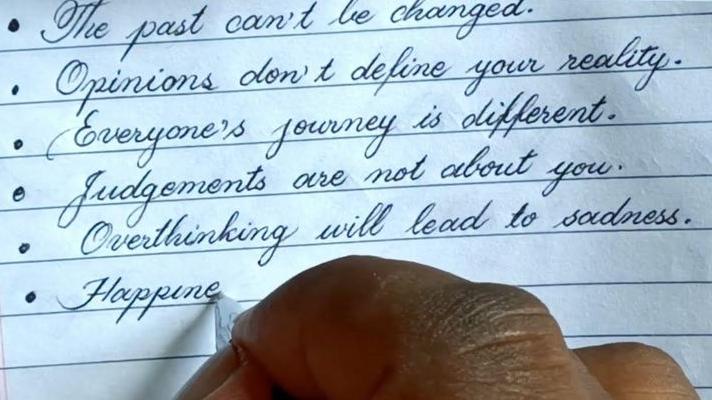 • The past can't be changed.
• Opinions don't define your reality.
• Everyone's journey is different.
• Judgements are not about you.
• Overthinking will lead to sadness.
• Happine